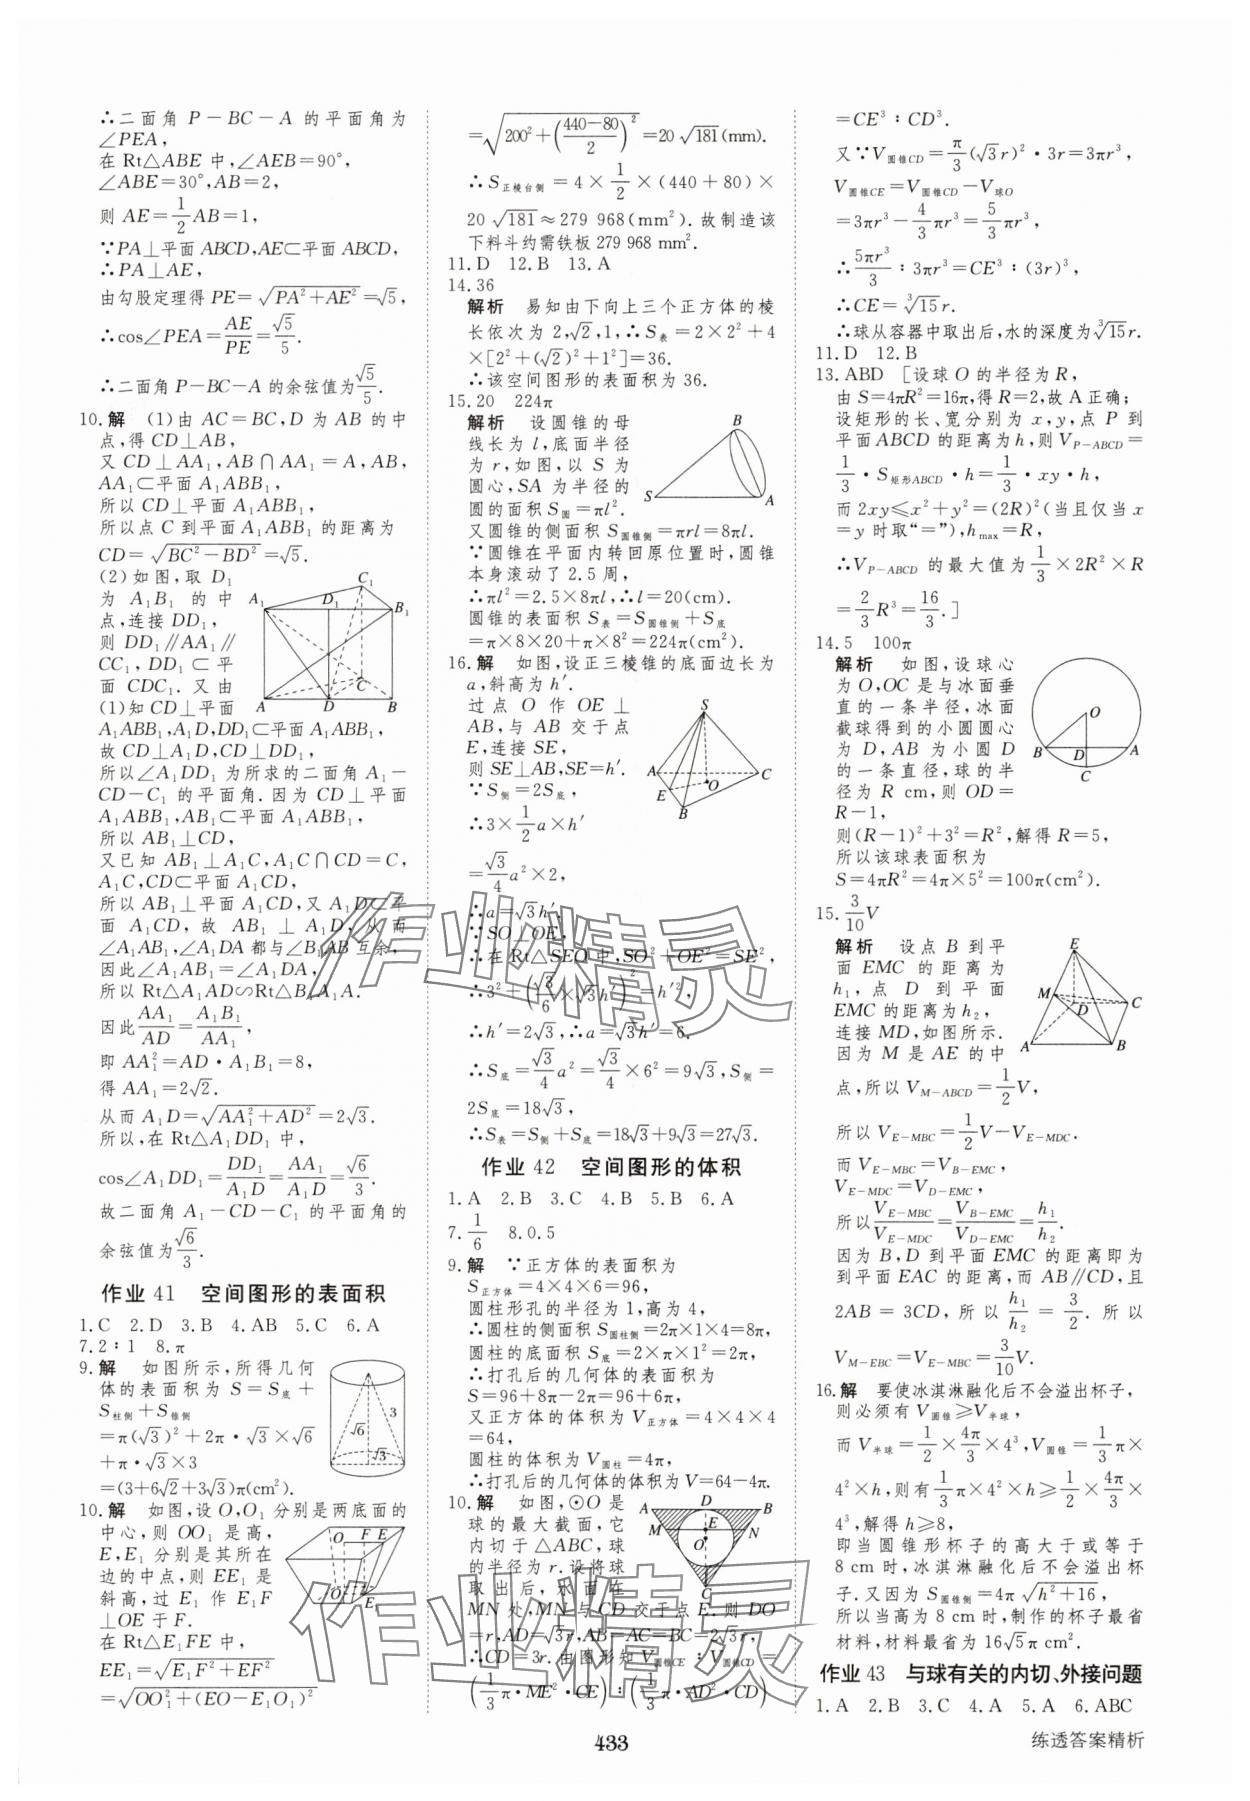 ∴二面角 P-BC-A 的平面角为
∠PEA,
在 Rt△ABE 中,∠AEB=90°,
∠ABE=30°,AB=2,
则 AE=1/2AB=1,
∵PA⊥平面 ABCD,AE⊂平面 ABCD,
∴PA⊥AE,
由勾股定理得 PE=√(PA²+AE²)=√5,
∴cos∠PEA=AE/PE=√5/5.
∴二面角 P-BC-A 的余弦值为√5/5.
10.解 (1)由 AC=BC,D 为 AB 的中
点,得 CD⊥AB,
又 CD⊥AA₁,AB∩AA₁=A,AB,
AA₁⊂平面 A₁ABB₁,
所以 CD⊥平面 A₁ABB₁,
所以点 C 到平面 A₁ABB₁ 的距离为
CD=√(BC²-BD²)=√5.
(2)如图,取 D₁
为 A₁B₁ 的中
点,连接 DD₁,
则 DD₁∥AA₁∥
CC₁,DD₁⊂平
面 CDC₁.又由
(1)知 CD⊥平面
A₁ABB₁,A₁D,DD₁⊂平面 A₁ABB₁,
故 CD⊥A₁D,CD⊥DD₁,
所以∠A₁DD₁ 为所求的二面角 A₁-
CD-C₁ 的平面角.因为 CD⊥平面
A₁ABB₁,AB₁⊂平面 A₁ABB₁,
所以 AB₁⊥CD,
又已知 AB₁⊥A₁C,A₁C∩CD=C,
A₁C,CD⊂平面 A₁CD,
所以 AB₁⊥平面 A₁CD,又 A₁D⊂平
面 A₁CD,故 AB₁⊥A₁D,从而
∠A₁AB₁,∠A₁DA 都与∠B₁AB 互余,
因此∠A₁AB₁=∠A₁DA,
所以 Rt△A₁AD∽Rt△B₁A₁A.
因此AA₁/AD=A₁B₁/AA₁,
即 AA₁²=AD·A₁B₁=8,
得 AA₁=2√2.
从而 A₁D=√(AA₁²+AD²)=2√3.
所以,在 Rt△A₁DD₁ 中,
cos∠A₁DD₁=DD₁/A₁D=AA₁/A₁D=√6/3.
故二面角 A₁-CD-C₁ 的平面角的
余弦值为√6/3.
作业 41 空间图形的表面积
1.C 2.D 3.B 4.AB 5.C 6.A
7.2∶1 8.π
9.解 如图所示,所得几何
体的表面积为 S=S底+
S柱侧+S锥侧
=π(√3)²+2π·√3×√6
+π·√3×3
=(3+6√2+3√3)π(cm²).
10.解 如图,设 O,O₁ 分别是两底面的
中心,则 OO₁ 是高,
E,E₁ 分别是其所在
边的中点,则 EE₁ 是
斜高,过 E₁ 作 E₁F
⊥OE 于 F.
在 Rt△E₁FE 中,
EE₁=√(E₁F²+EF²)
=√(OO₁²+(EO-E₁O₁)²)
=√(200²+((440-80)/2)²)=20√181(mm).
∴S正棱台侧=4×1/2×(440+80)×
20√181≈279 968(mm²).故制造该
下料斗约需铁板 279 968 mm².
11.D 12.B 13.A
14.36
解析 易知由下向上三个正方体的棱
长依次为 2,√2,1,∴S表=2×2²+4
×[2²+(√2)²+1²]=36.
∴该空间图形的表面积为 36.
15.20 224π
解析 设圆锥的母
线长为 l,底面半径
为 r,如图,以 S 为
圆心,SA 为半径的
圆的面积 S圆=πl².
又圆锥的侧面积 S圆锥侧=πrl=8πl.
∵圆锥在平面内转回原位置时,圆锥
本身滚动了 2.5 周,
∴πl²=2.5×8πl,∴l=20(cm).
圆锥的表面积 S表=S圆锥侧+S底
=π×8×20+π×8²=224π(cm²).
16.解 如图,设正三棱锥的底面边长为
a,斜高为 h′.
过点 O 作 OE⊥
AB,与 AB 交于点
E,连接 SE,
则 SE⊥AB,SE=h′.
∵S侧=2S底,
∴3×1/2a×h′
=√3/4a²×2,
∴a=√3h′.
∵SO⊥OE,
∴在 Rt△SEO 中,SO²+OE²=SE²,
∴3²+(√3/6×√3h′)²=h′²,
∴h′=2√3,∴a=√3h′=6.
∴S底=√3/4a²=√3/4×6²=9√3,S侧=
2S底=18√3,
∴S表=S侧+S底=18√3+9√3=27√3.
作业 42 空间图形的体积
1.A 2.B 3.C 4.B 5.B 6.A
7.1/6 8.0.5
9.解 ∵正方体的表面积为
S正方体=4×4×6=96,
圆柱形孔的半径为 1,高为 4,
∴圆柱的侧面积 S圆柱侧=2π×1×4=8π,
圆柱的底面积 S底=2×π×1²=2π,
∴打孔后的几何体的表面积为
S=96+8π-2π=96+6π,
又正方体的体积为 V正方体=4×4×4
=64,
圆柱的体积为 V圆柱=4π,
∴打孔后的几何体的体积为 V=64-4π.
10.解 如图,⊙O 是
球的最大截面,它
内切于△ABC,球
的半径为 r.设将球
取出后,水面在
MN 处,MN 与 CD 交于点 E.则 DO
=r,AD=√3r,AB=AC=BC=2√3r,
∴CD=3r.由图形知 V圆锥CE∶V圆锥CD=
(1/3π·ME²·CE)∶(1/3π·AD²·CD)
=CE³∶CD³.
又∵V圆锥CD=π/3(√3r)²·3r=3πr³,
V圆锥CE=V圆锥CD-V球O
=3πr³-4/3πr³=5/3πr³,
∴5πr³/3∶3πr³=CE³∶(3r)³,
∴CE=∛15r.
∴球从容器中取出后,水的深度为∛15r.
11.D 12.B
13.ABD [设球 O 的半径为 R,
由 S=4πR²=16π,得 R=2,故 A 正确;
设矩形的长、宽分别为 x,y,点 P 到
平面 ABCD 的距离为 h,则 VP-ABCD=
1/3·S矩形ABCD·h=1/3·xy·h,
而 2xy≤x²+y²=(2R)²(当且仅当 x
=y 时取“=”),hmax=R,
∴VP-ABCD 的最大值为1/3×2R²×R
=2/3R³=16/3.]
14.5 100π
解析 如图,设球心
为 O,OC 是与冰面垂
直的一条半径,冰面
截球得到的小圆圆心
为 D,AB 为小圆 D
的一条直径,球的半
径为 R cm,则 OD=
R-1,
则(R-1)²+3²=R²,解得 R=5,
所以该球表面积为
S=4πR²=4π×5²=100π(cm²).
15.3/10V
解析 设点 B 到平
面 EMC 的距离为
h₁,点 D 到平面
EMC 的距离为 h₂,
连接 MD,如图所示.
因为 M 是 AE 的中
点,所以 VM-ABCD=1/2V,
所以 VE-MBC=1/2V-VE-MDC.
而 VE-MBC=VB-EMC,
VE-MDC=VD-EMC,
所以VE-MBC/VE-MDC=VB-EMC/VD-EMC=h₁/h₂.
因为 B,D 到平面 EMC 的距离即为
到平面 EAC 的距离,而 AB∥CD,且
2AB=3CD,所以h₁/h₂=3/2.所以
VM-EBC=VE-MBC=3/10V.
16.解 要使冰淇淋融化后不会溢出杯子,
则必须有 V圆锥≥V半球,
而 V半球=1/2×4π/3×4³,V圆锥=1/3π×
4²×h,则有1/3π×4²×h≥1/2×4π/3×
4³,解得 h≥8,
即当圆锥形杯子的高大于或等于
8 cm 时,冰淇淋融化后不会溢出杯
子.又因为 S圆锥侧=4π√(h²+16),
所以当高为 8 cm 时,制作的杯子最省
材料,材料最省为 16√5π cm².
作业 43 与球有关的内切、外接问题
1.A 2.B 3.C 4.A 5.A 6.ABC
433
练透答案精析
作业精灵
作业精灵